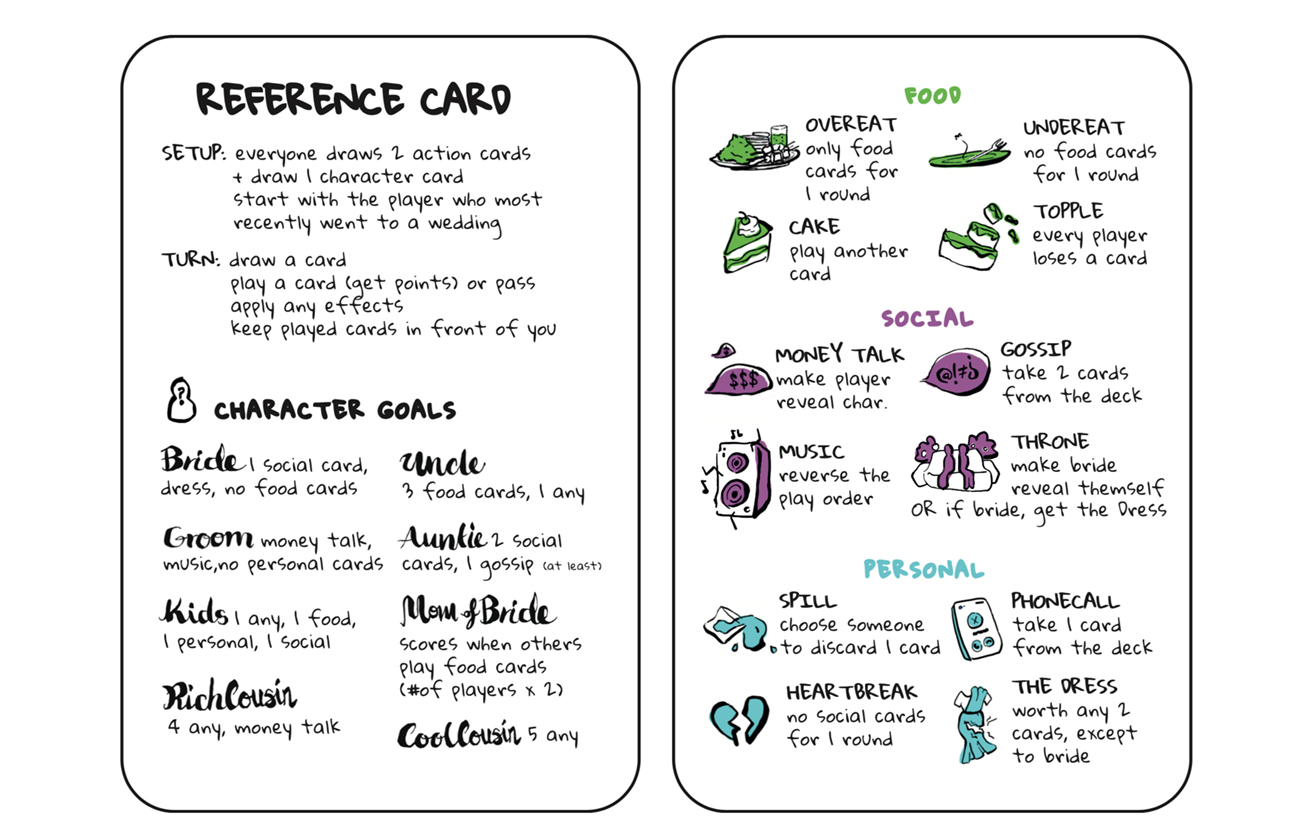 REFERENCE CARD
SETUP: everyone draws 2 action cards
+ draw 1 character card
start with the player who most
recently went to a wedding
TURN: draw a card
play a card (get points) or pass
apply any effects
keep played cards in front of you
?
CHARACTER GOALS
Bride 1 social card,
dress, no food cards
Groom money talk,
music,no personal cards
Kids 1 any, 1 food,
1 personal, 1 social
RichCousin
4 any, money talk
Uncle
3 food cards, 1 any
Auntie 2 social
cards, 1 gossip (at least)
Mom of Bride
scores when others
play food cards
(#of players x 2)
CoolCousin 5 any
FOOD
OVEREAT
only food
cards for
1 round
UNDEREAT
no food cards
for 1 round
CAKE
play another
card
TOPPLE
every player
loses a card
SOCIAL
$$$
MONEY TALK
make player
reveal char.
GOSSIP
take 2 cards
from the deck
MUSIC
reverse the
play order
THRONE
make bride
reveal themself
OR if bride, get the Dress
PERSONAL
SPILL
choose someone
to discard 1 card
PHONECALL
take 1 card
from the deck
HEARTBREAK
no social cards
for 1 round
THE DRESS
worth any 2
cards, except
to bride